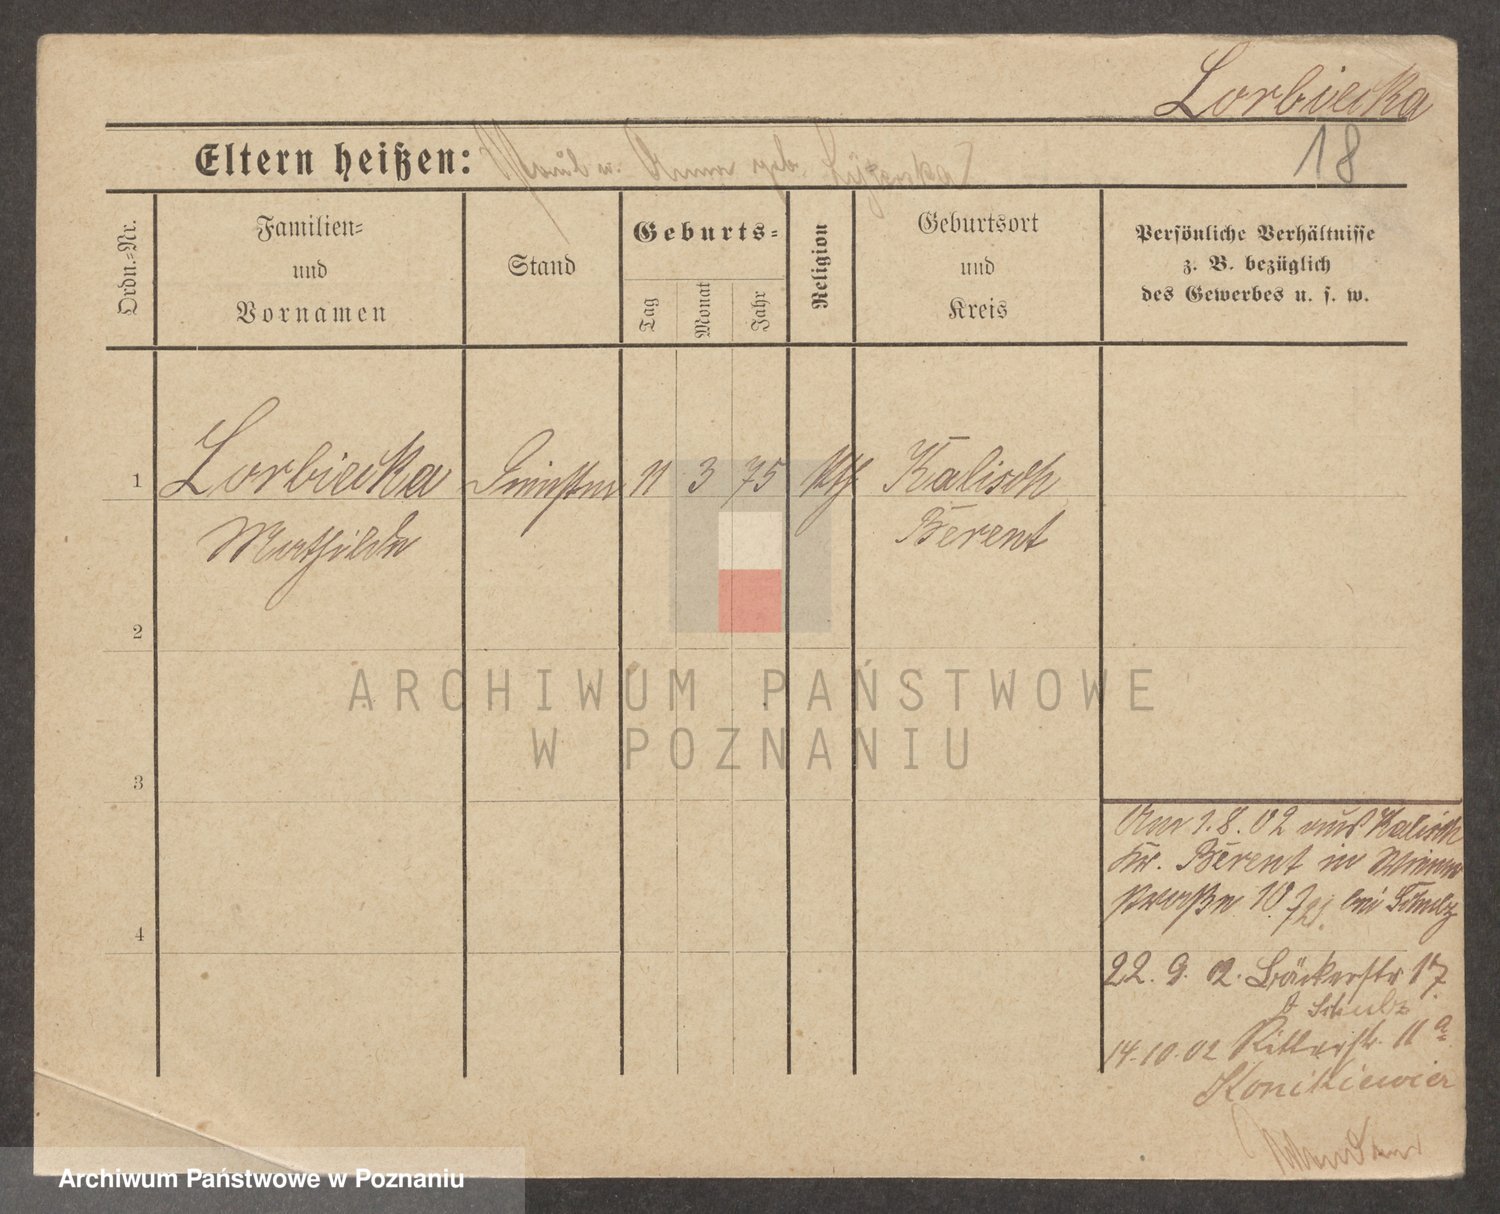 Lorbiecka
18
Eltern heißen: Anna geb.
Ordn.-Nr.
Familien-
und
Vornamen
Stand
Geburts-
Tag
Monat
Jahr
Religion
Geburtsort
und
Kreis
Persönliche Verhältnisse
z. B. bezüglich
des Gewerbes u. s. w.
1 Lorbiecka 11 3 75 kth Kalisch
Mathilde Berent
2
3
4
Am 1.8.02 aus Kalisch
Kr. Berent in
straße 10 bei Schulz
22. 9. 02. Bäckerstr 17.
b Schulz
14.10.02 Ritterstr. 11a
Konikiewicz
ARCHIWUM PAŃSTWOWE
W POZNANIU
Archiwum Państwowe w Poznaniu